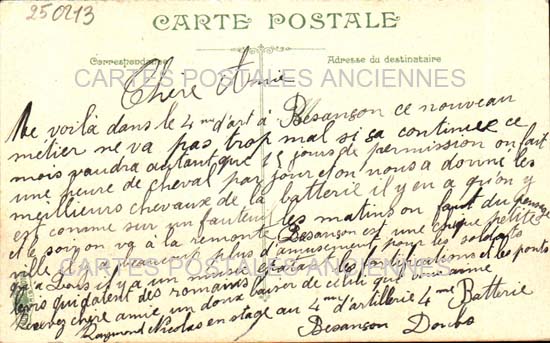 250213
CARTE POSTALE
Correspondance
Adresse du destinataire
CARTES POSTALES ANCIENNES
Chère Amie
Me voilà dans le 4me d'art à Besançon ce nouveau
métier ne va pas trop mal si sa continue ce
mois vaudra autant que 15 jours de permission on fait
une heure de cheval par jour et on nous a donné les
meilleurs chevaux de la batterie il y en a qu'on y
est comme sur un fauteuil les matins on fait du pansage
et le soir on va à la remonte Besançon est une chique petite
ville plus d'amusement pour les soldats
qu'a Lons il y a un musée épatant les fortifications et les ponts
levis qui datent des romains
CARTES POSTALES ANCIENNES
Recevez chère amie un doux baiser de celui qui t'aime
Raymond Nicolas en stage au 4me d'artillerie 4me Batterie
Besançon Doubs